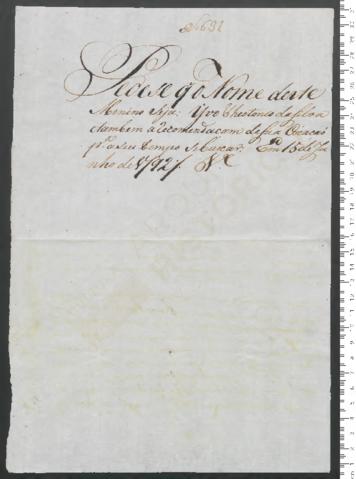 Nº 631
Pecese q̃ o Nome deste
Menino Seja: Yvo Thestones da Silva
e tambem a Recomendacam de sua Criacaõ
pª a seu tempo se buscar. Em 15 de Ju
nho de 1792,,